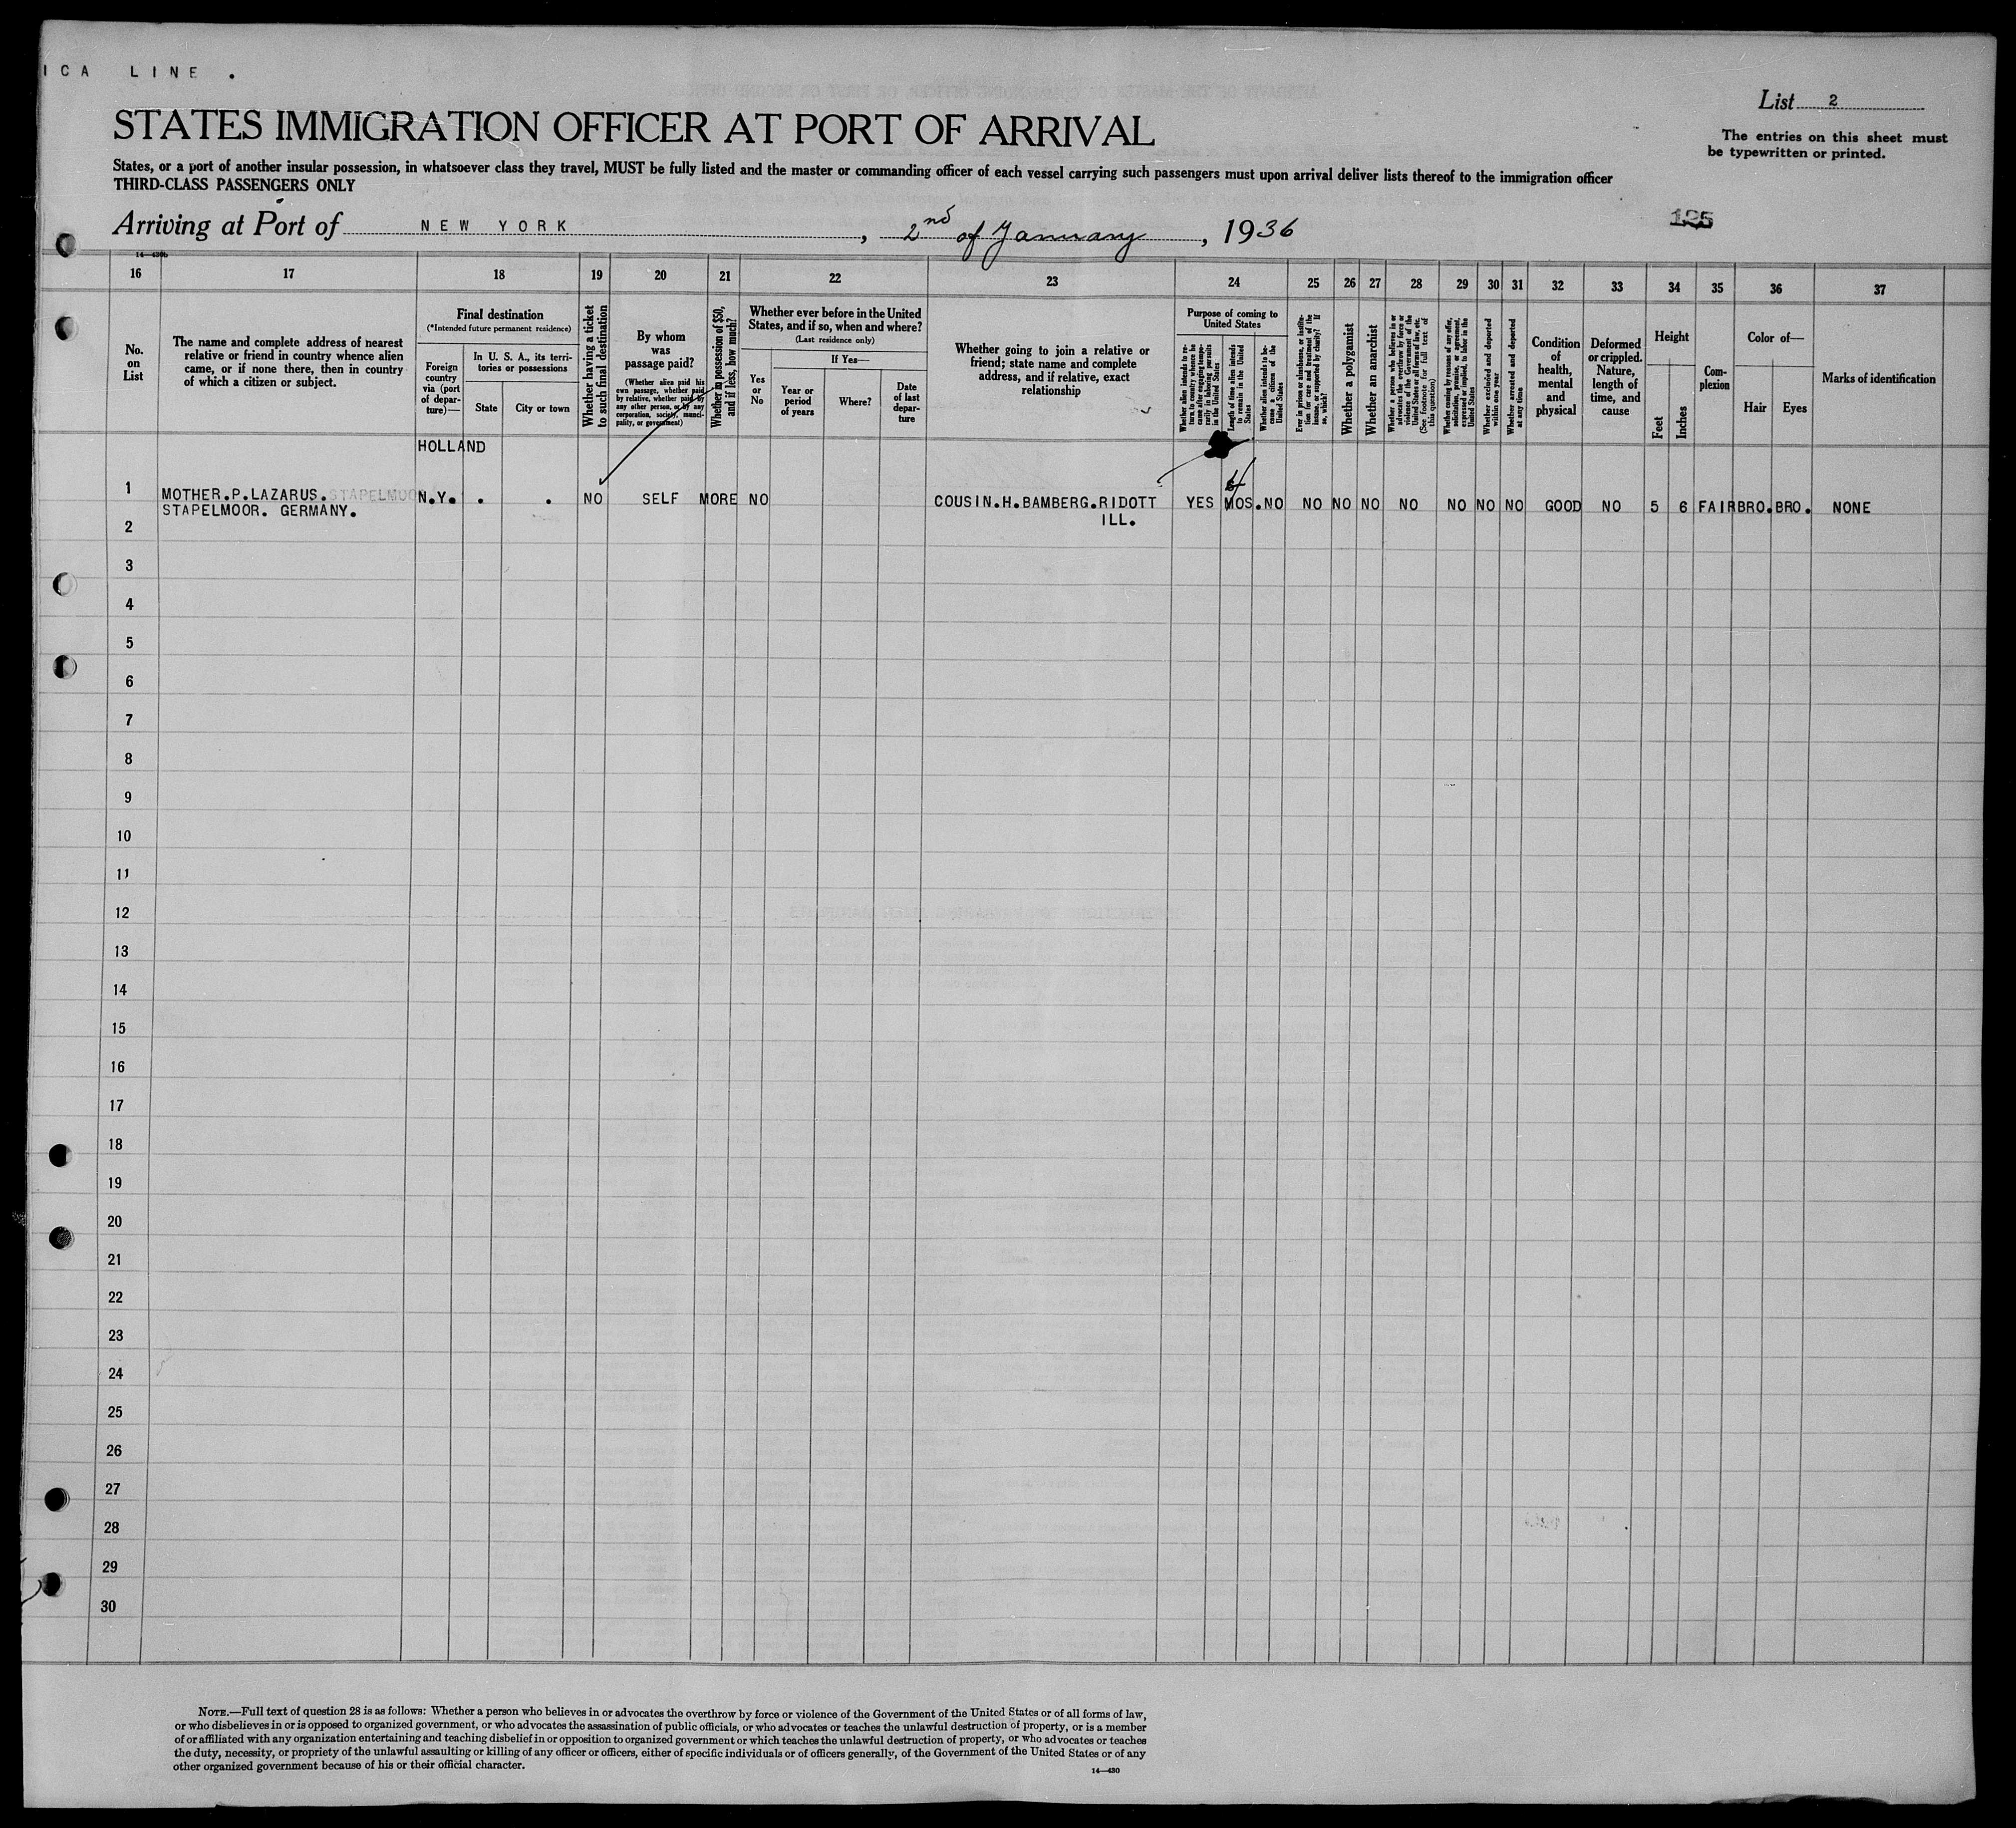 ICA LINE .
List 2
STATES IMMIGRATION OFFICER AT PORT OF ARRIVAL
The entries on this sheet must
be typewritten or printed.
States, or a port of another insular possession, in whatsoever class they travel, MUST be fully listed and the master or commanding officer of each vessel carrying such passengers must upon arrival deliver lists thereof to the immigration officer
THIRD-CLASS PASSENGERS ONLY
Arriving at Port of NEW YORK, 2nd of January, 1936
125
16 17 18 19 20 21 22 23 24 25 26 27 28 29 30 31 32 33 34 35 36 37
No.
on
List
The name and complete address of nearest
relative or friend in country whence alien
came, or if none there, then in country
of which a citizen or subject.
Final destination
(*Intended future permanent residence)
Foreign
country
via (port
of depar-
ture)—
In U. S. A., its terri-
tories or possessions
State
City or town
Whether having a ticket
to such final destination
By whom
was
passage paid?
(Whether alien paid his
own passage, whether paid
by relative, whether paid by
any other person, or by any
corporation, society, munici-
pality, or government)
Whether in possession of $50,
and if less, how much?
Whether ever before in the United
States, and if so, when and where?
(Last residence only)
Yes
or
No
If Yes—
Year or
period
of years
Where?
Date
of last
depar-
ture
Whether going to join a relative or
friend; state name and complete
address, and if relative, exact
relationship
Purpose of coming to
United States
Whether alien intends to re-
turn to country whence he
came after engaging tempo-
rarily in laboring pursuits
in the United States
Length of time alien intends
to remain in the United
States
Whether alien intends to be-
come a citizen of the
United States
Ever in prison or almshouse, or institu-
tion for care and treatment of the
insane, or supported by charity? If
so, which?
Whether a polygamist
Whether an anarchist
Whether a person who believes in or
advocates the overthrow by force or
violence of the Government of the
United States or all forms of law, etc.
(See footnote for full text of
this question)
Whether coming by reasons of any offer,
solicitation, promise, or agreement,
expressed or implied, to labor in the
United States
Whether excluded and deported
within one year
Whether arrested and deported
at any time
Condition
of
health,
mental
and
physical
Deformed
or crippled.
Nature,
length of
time, and
cause
Height
Feet
Inches
Com-
plexion
Color of—
Hair
Eyes
Marks of identification
HOLLAND
1 MOTHER.P.LAZARUS. N.Y. . . NO SELF MORE NO COUSIN.H.BAMBERG.RIDOTT YES MOS. NO NO NO NO NO NO NO NO GOOD NO 5 6 FAIR BRO. BRO. NONE
STAPELMOOR. GERMANY. ILL.
2
3
4
5
6
7
8
9
10
11
12
13
14
15
16
17
18
19
20
21
22
23
24
25
26
27
28
29
30
NOTE.—Full text of question 28 is as follows: Whether a person who believes in or advocates the overthrow by force or violence of the Government of the United States or of all forms of law,
or who disbelieves in or is opposed to organized government, or who advocates the assassination of public officials, or who advocates or teaches the unlawful destruction of property, or is a member
of or affiliated with any organization entertaining and teaching disbelief in or opposition to organized government or which teaches the unlawful destruction of property, or who advocates or teaches
the duty, necessity, or propriety of the unlawful assaulting or killing of any officer or officers, either of specific individuals or of officers generally, of the Government of the United States or of any
other organized government because of his or their official character.
14—430